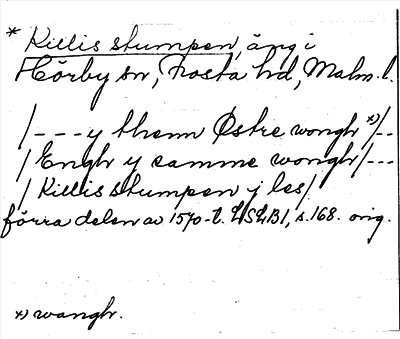 * Killis stumpen, äng i
Hörby sn, Frosta hd, Malm. l.
/--- y themm Østre wongh *)/--
/ Engh y samme wongh /---
/ Killis stumpen j les/
förra delen av 1570-t. LSLB1, s. 168. orig.
*) wangh.